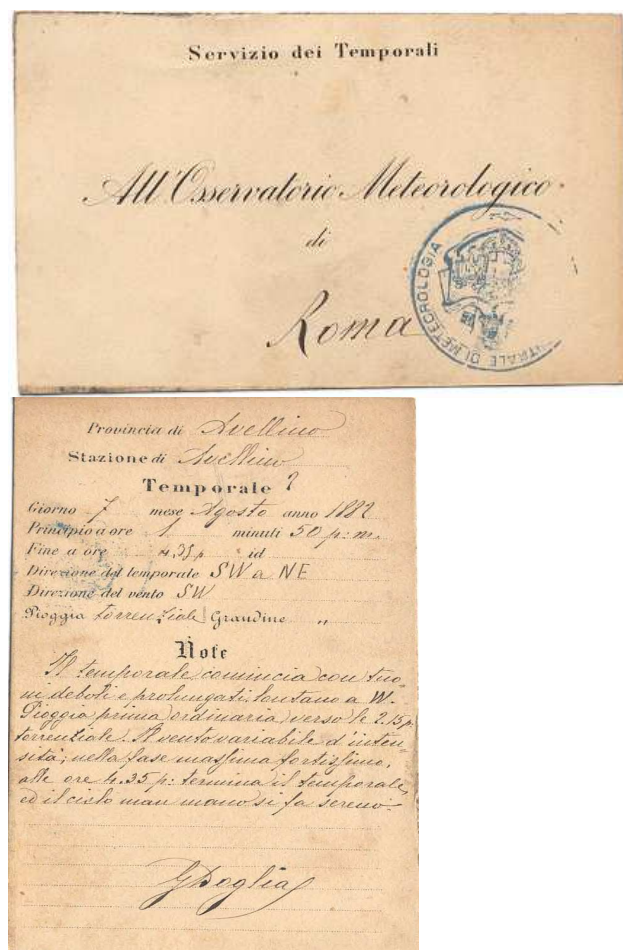 Servizio dei Temporali
All'Osservatorio Meteorologico
di
Roma
TRALE DI METEOROLOGIA
Provincia di Avellino
Stazione di Avellino
Temporale ?
Giorno 7 mese Agosto anno 1882
Principio a ore 1 minuti 50 p: m.
Fine a ore 4.35 p id
Direzione del temporale SW a NE
Direzione del vento SW
Pioggia torrenziale Grandine "
Note
Il temporale comincia con tuo-
ni deboli e prolungati, lontano a W.
Pioggia prima ordinaria, verso le 2.15 p
torrenziale. Il vento variabile d'inten-
sità; nella fase massima fortissimo.
alle ore 4.35 p: termina il temporale,
ed il cielo man mano si fa sereno.-
G Doglia